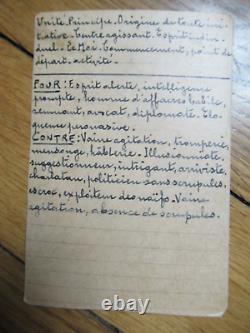 Unité. Principe. Origine de toute ini-
tiative. Centre agissant. Esprit indivi-
duel. Le Moi. Commencement, point de
départ. activité.
POUR : Esprit alerte, intelligence
prompte, homme d'affaires habile,
remuant, avocat, diplomate. Elo-
quence persuasive.
CONTRE : Vaine agitation, tromperie,
mensonge, hâblerie. Illusionniste,
suggestionneur, intrigant, arriviste,
charlatan, politicien sans scrupules,
escroc, exploiteur des naïfs. Vaine
agitation, absence de scrupules.
ebay